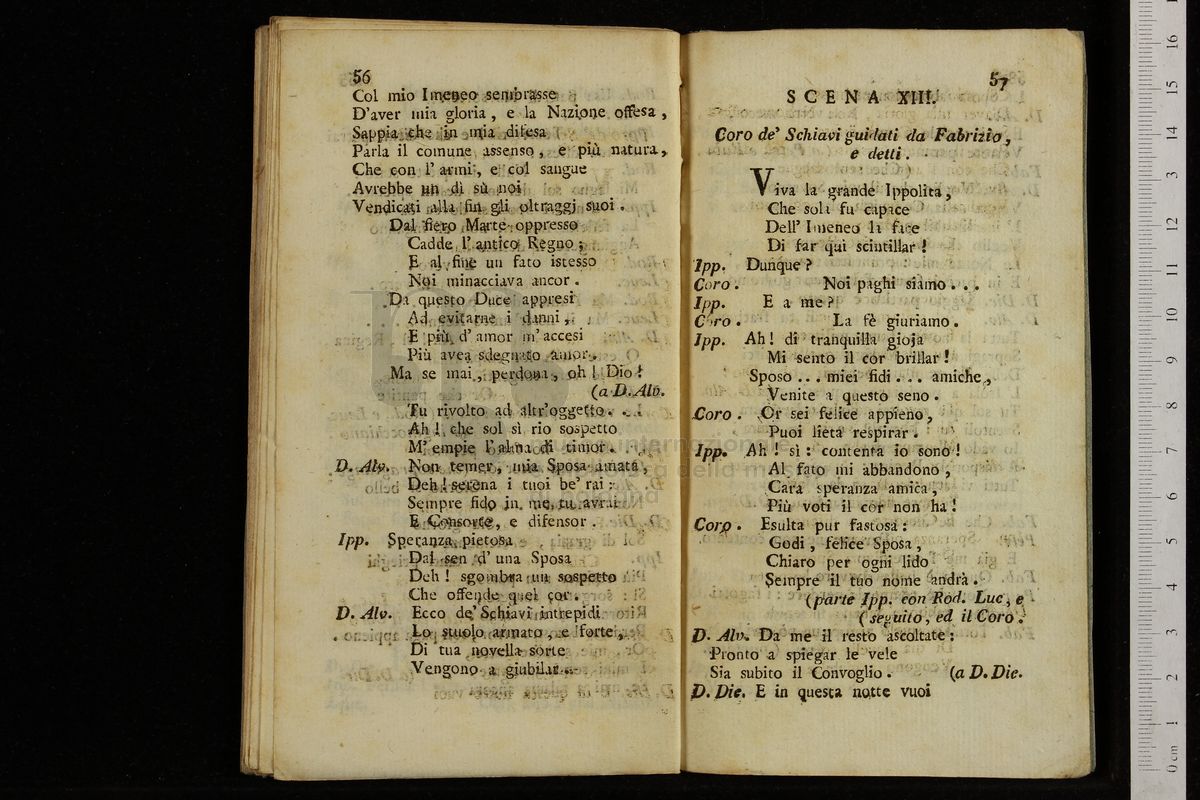 56
Col mio Imeneo sembrasse
D'aver mia gloria, e la Nazione offesa,
Sappia che in mia difesa
Parla il comune assenso, e più natura,
Che con l'armi, e col sangue
Avrebbe un dì sù noi
Vendicati alla fin gli oltraggj suoi.
Dal fiero Marte oppresso
Cadde l'antico Regno;
E al fine un fato istesso
Noi minacciava ancor.
Da questo Duce appresi
Ad evitarne i danni,
E più d'amor m'accesi
Più avea sdegnato amor.
Ma se mai, perdona, oh! Dio!
(a D. Alv.
Tu rivolto ad altr'oggetto...
Ah! che sol sì rio sospetto
M'empie l'alma di timor.
D. Alv. Non temer, mia Sposa amata,
Deh! serena i tuoi be' rai:
Sempre fido in me tu avrai
E Consorte, e difensor.
Ipp. Speranza pietosa
Dal sen d'una Sposa
Deh! sgombra un sospetto
Che offende quel cor.
D. Alv. Ecco de' Schiavi intrepidi
Lo stuolo armato, e forte,
Di tua novella sorte
Vengono a giubilar.
57
SCENA XIII.
Coro de' Schiavi guidati da Fabrizio,
e detti.
Viva la grande Ippolita,
Che sola fu capace
Dell' Imeneo la face
Di far qui scintillar!
Ipp. Dunque?
Coro. Noi paghi siamo...
Ipp. E a me?
Coro. La fè giuriamo.
Ipp. Ah! di tranquilla gioja
Mi sento il cor brillar!
Sposo... miei fidi... amiche,
Venite a questo seno.
Coro. Or sei felice appieno,
Puoi lieta respirar.
Ipp. Ah! sì: contenta io sono!
Al fato mi abbandono,
Cara speranza amica,
Più voti il cor non ha!
Coro. Esulta pur fastosa:
Godi, felice Sposa,
Chiaro per ogni lido
Sempre il tuo nome andrà.
(parte Ipp. con Rod. Luc, e
(seguito, ed il Coro.
D. Alv. Da me il resto ascoltate:
Pronto a spiegar le vele
Sia subito il Convoglio. (a D. Die.
D. Die. E in questa notte vuoi